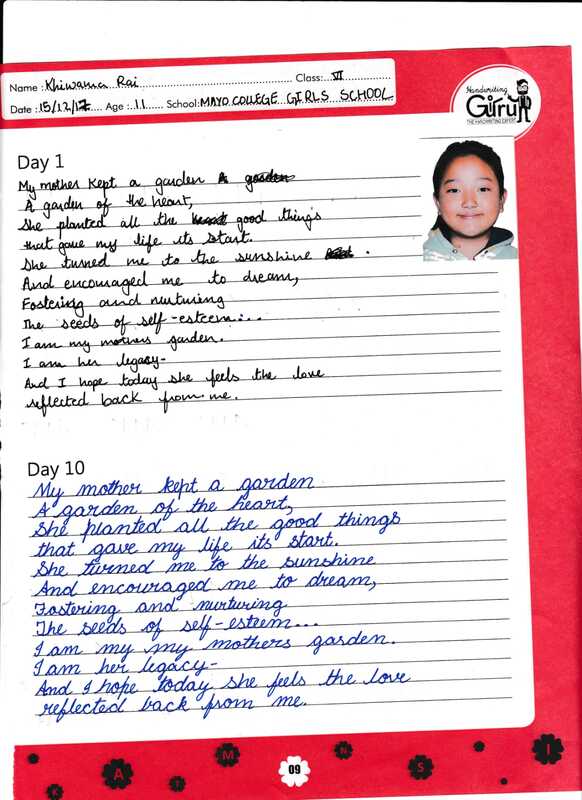 Name : Khiwama Rai Class: VI
Date : 15/12/17 Age : 11 School: MAYO COLLEGE GIRLS SCHOOL
Handwriting
Guru
THE HANDWRITING EXPERT
Day 1
My mother kept a garden A garden
A garden of the heart,
She planted all the good things
that gave my life its start.
She turned me to the sunshine .
And encouraged me to dream,
Fostering and nurturing
The seeds of self-esteem...
I am my mothers garden.
I am her legacy-
And I hope today she feels the love
reflected back from me.
Day 10
My mother kept a garden
A garden of the heart,
She planted all the good things
that gave my life its start.
She turned me to the sunshine
And encouraged me to dream,
Fostering and nurturing
The seeds of self-esteem...
I am my my mothers garden.
I am her legacy-
And I hope today she feels the love
reflected back from me.
K A T M 09 N S I